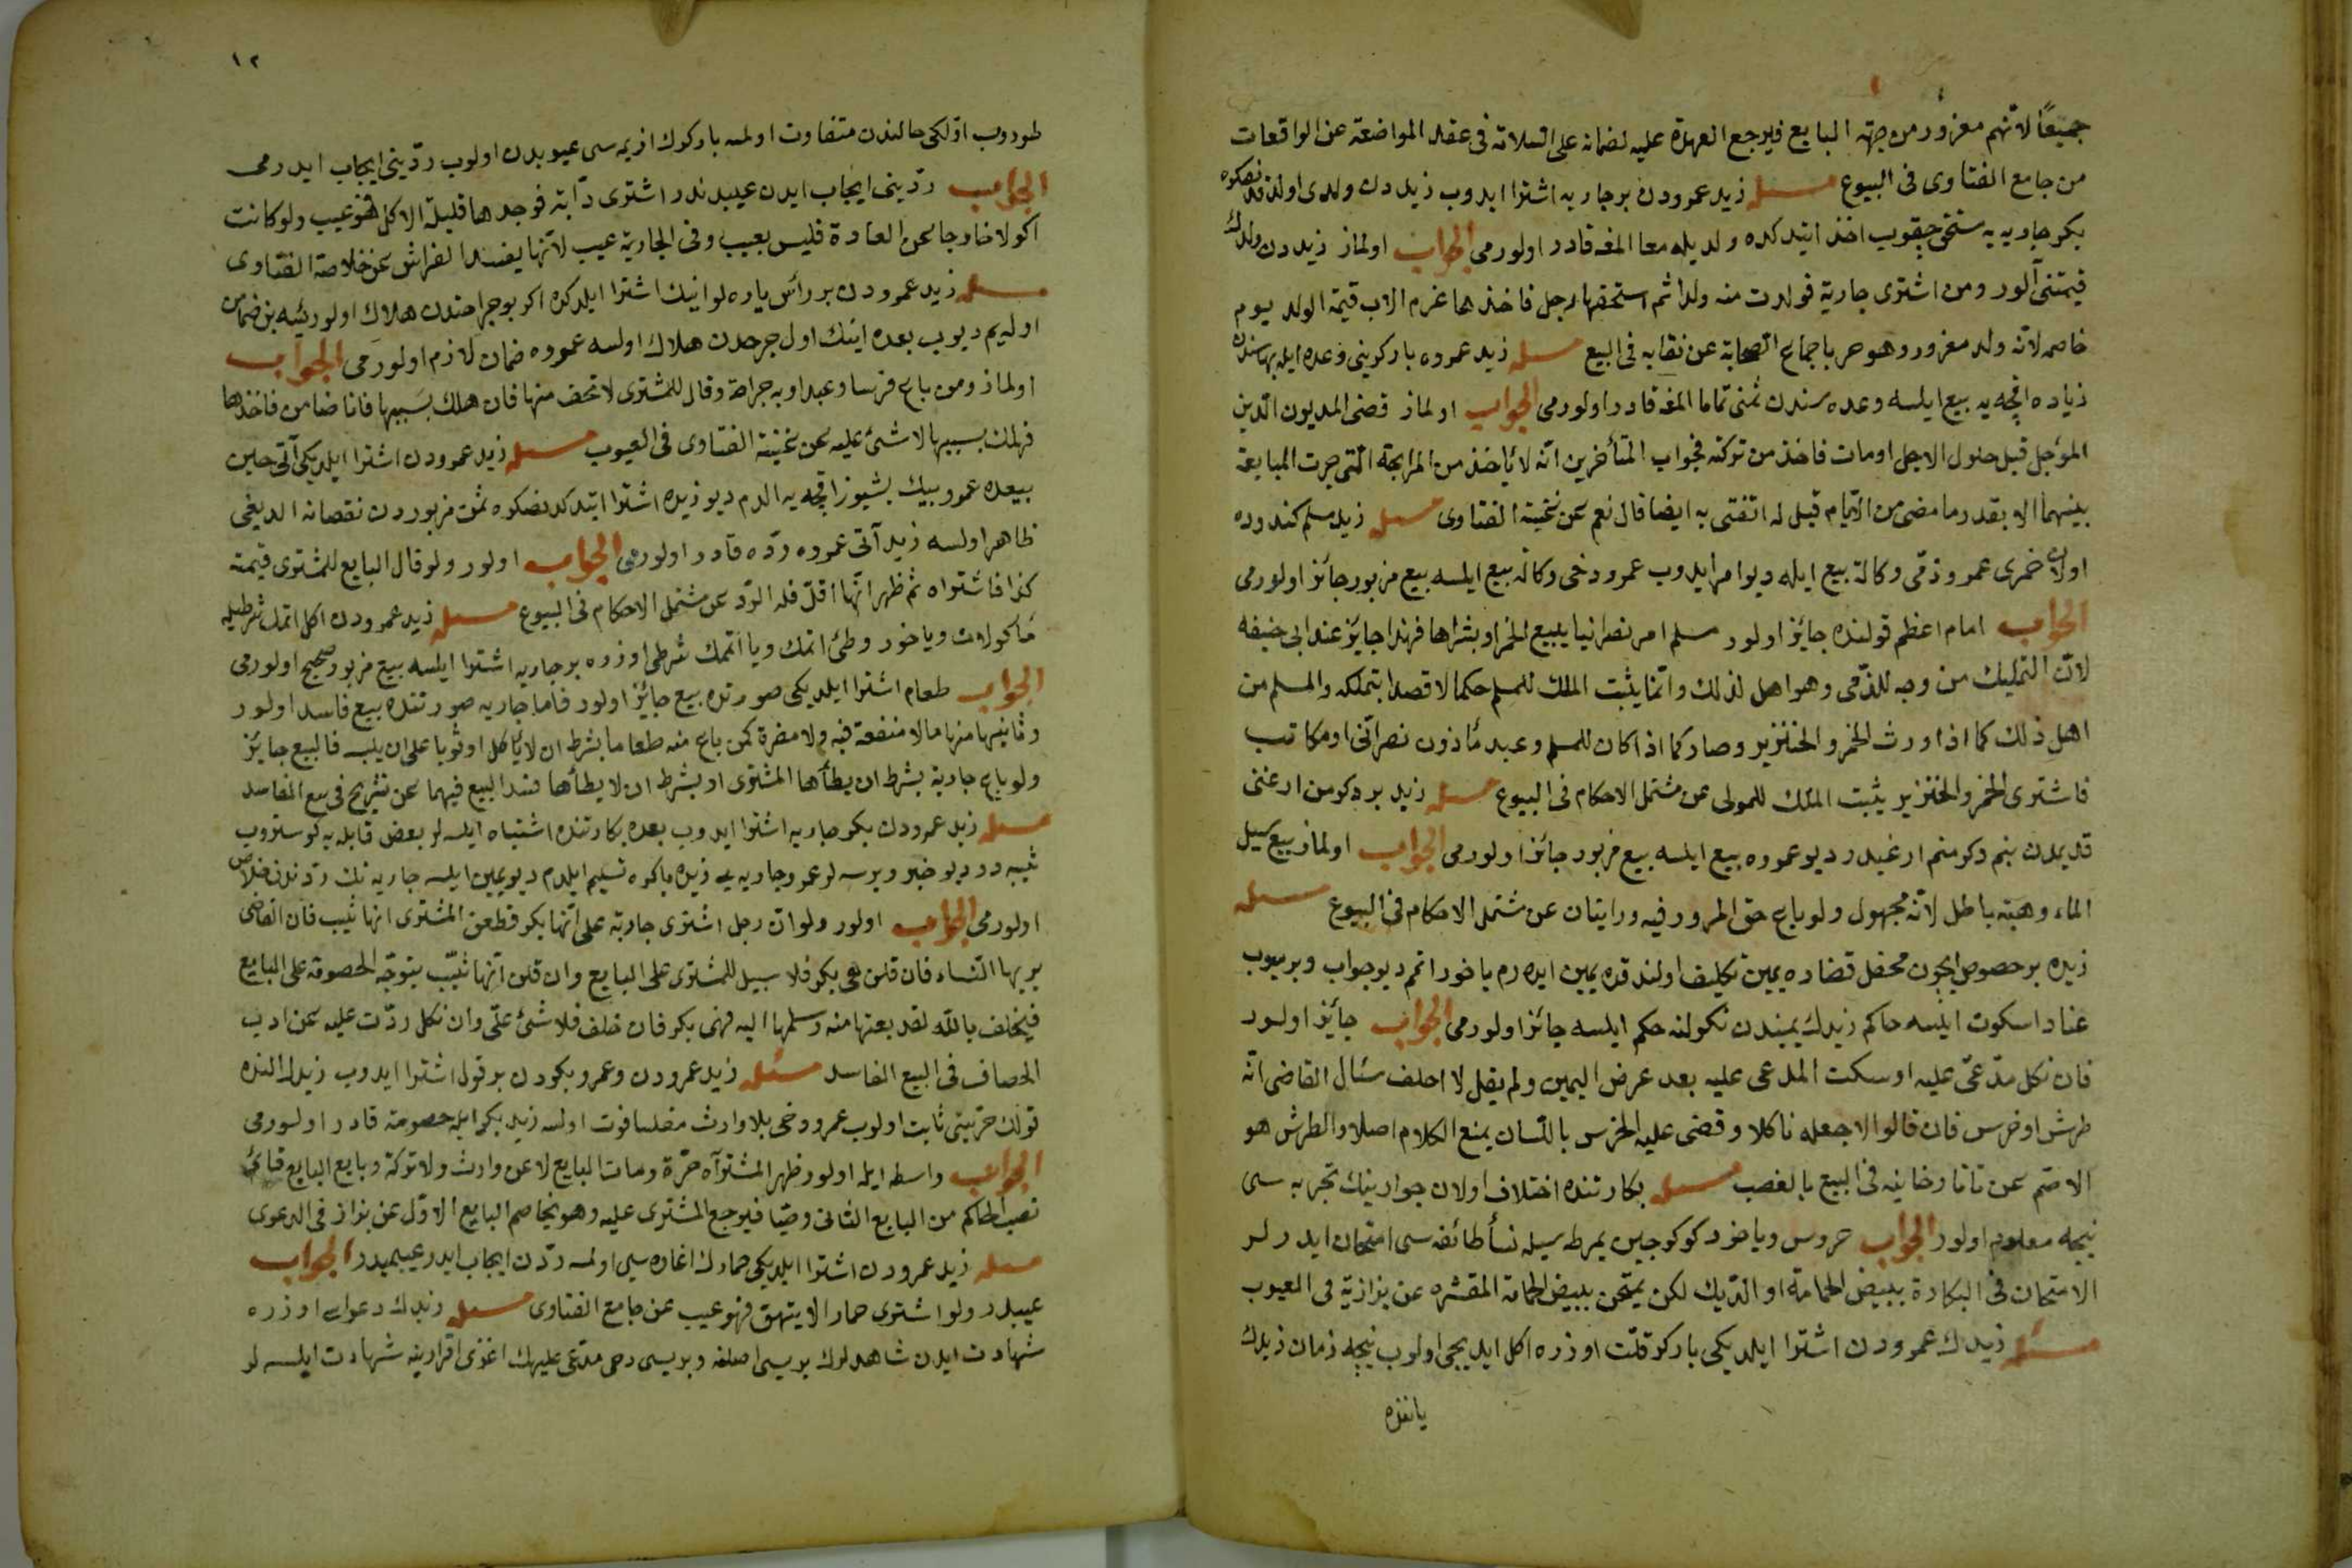 جميعًا لانهم مغرور من جهة البايع فيرجع العهدة عليه لضمانه على السلامة فى عقد المواضعة عن الواقعات
من جامع الفتاوى فى البيوع مسئله زيد عمرودن بر جاريه اشترا ايدوب زيددن ولدى اولدقدنصكره
بكر جاريه يه مستحق چيقوب اخذ ايتدكده ولديله معا المغه قادر اولورمى الجواب اولماز زيددن ولدك
قيمتنى آلور ومن اشترى جارية فولدت منه ولدا ثم استحقها رجل فاخذها غرم الاب قيمة الولد يوم
خاصم لانه ولد مغرور وهو حر باجماع الصحابة عن نقايه فى البيع مسئله زيد عمروه باركيرينى وعده ايله بهاسندن
زياده اقچه يه بيع ايلسه وعده سندن ثمنى تماما المغه قادر اولورمى الجواب اولماز قضى المديون الدين
المؤجل قبل حلول الاجل او مات فاخذ من تركته فجواب المتأخرين انه لا يأخذ من المرابحة التى جرت المبايعة
بينهما الا بقدر ما مضى من الايام قيل له اتفتى به ايضا قال نعم عن غنية الفتاوى مسئله زيد مسلم كندوده
اولان خمرى عمرو ذمى وكالة بيع ايله ديو امر ايدوب عمرو دخى وكالة بيع ايلسه بيع مزبور جائز اولورمى
الجواب امام اعظم قولنده جايز اولور مسلم امر نصرانيا يبيع الخمر او بشراها فهذا جايز عند ابى حنيفه
لان التمليك من وجه للذمى وهو اهل لذلك وانما يثبت الملك للمسلم حكما لا قصدا بتملكه والمسلم من
اهل ذلك كما اذا ورث الخمر والخنزير وصار كما اذا كان للمسلم وعبد مأذون نصرانى او مكاتب
فاشترى الخمر والخنزير يثبت الملك للمولى عن مشتمل الاحكام فى البيوع مسئله زيد بر دكرمن ارغنى
قديمدن بنم دكرمنم ارغيدر ديو عمروه بيع ايلسه بيع مزبور جائز اولورمى الجواب اولماز بيع سيل
الماء وهبته باطل لانه مجهول ولو باع حق المرور فيه روايتان عن مشتمل الاحكام فى البيوع مسئله
زيده بر خصوص ايچون محفل قضاده يمين تكليف اولندقده يمين ايدرم ياخود اتمم ديو جواب ويرميوب
عنادا سكوت ايلسه حاكم زيدك يمينندن نكولنه حكم ايلسه جائز اولورمى الجواب جايز اولور
فان نكل مدعى عليه او سكت المدعى عليه بعد عرض اليمين ولم يقل لا احلف سئال القاضى انه
طرش او خرس فان قالوا لا جعله ناكلا وقضى عليه الخرس باللسان يمنع الكلام اصلا والطرش هو
الاصم عن تاتارخانيه فى البيع بالغصب مسئله بكارتنده اختلاف اولان جوارينك تجربه سى
نيجه معلوم اولور الجواب خروس وياخود كوكرجين يمرطه سيله نسأ طائفه سى امتحان ايدرلر
الامتحان فى البكارة ببيض الحمامة او الديك لكن يمتحن ببيض الحمامة المقشره عن بزازية فى العيوب
مسئله زيدك عمرودن اشترا ايلديكى باركير قلت اوزره اكل ايديجى اولوب نيجه زمان زيدك
ياننده
١٢
طوروب اولكى حالندن متفاوت اولمسه باركيرك ازيمه سى عيوبدن اولوب ردينى ايجاب ايدرمى
الجواب ردينى ايجاب ايدن عيبدندر اشترى دابة فوجدها قليلة الاكل فهو عيب ولو كانت
اكولا خارجا عن العادة فليس بعيب وفى الجارية عيب لانها يفسد الفراش عن خلاصة الفتاوى
مسئله زيد عمرودن بر رأس ياره لو اينك اشترا ايلدكده اكر بو جراحتدن هلاك اولورسه بن ضامن
اوليم ديوب بعده اينك اول جرحدن هلاك اولسه عمروه ضمان لازم اولورمى الجواب
اولماز ومن باع فرسا وعبدا وبه جراحة وقال للمشترى لا تخف منها فان هلك بسببها فانا ضامن فاخذها
فهلك بسببها لا شئ عليه عن غنية الفتاوى فى العيوب مسئله زيد عمرودن اشترا ايلديكى آتى حين
بيعده عمرو بيك بشيوز اقچه يه الدم ديو زيده اشترا ايتدكدنصكره ثمن مزبوردن نقصانه الديغى
ظاهر اولسه زيد آتى عمروه رده قادر اولورمى الجواب اولور ولو قال البايع للمشترى قيمته
كذا فاشتراه ثم ظهر انها اقل فله الرد عن مشتمل الاحكام فى البيوع مسئله زيد عمرودن اكل اتمك شرطيله
مأكولات وياخود وطئ اتمك ويا اتممك شرطى اوزره بر جاريه اشترا ايلسه بيع مزبور صحيح اولورمى
الجواب طعام اشترا ايلديكى صورتده بيع جايز اولور فاما جاريه صورتنده بيع فاسد اولور
وثانيها منها ما لا منفعة فيه ولا مضرة كمن باع منه طعاما بشرط ان لا يأكل او ثوبا على ان يلبسه فالبيع جايز
ولو باع جارية بشرط ان يطأها المشترى او بشرط ان لا يطأها فسد البيع فيهما عن تشريح فى بيع الفاسد
مسئله زيد عمرودن بكر جاريه اشترا ايدوب بعده بكارتنده اشتباه ايلسه لر بعض قابله يه كوستروب
ثيبه در ديو خبر ويرسه لر عمرو جاريه يى زيده باكره تسليم ايلدم ديو يمين ايلسه جاريه نك ردندن خلاص
اولورمى الجواب اولور ولو ان رجل اشترى جارية على انها بكر فطعن المشترى انها ثيب فان القاضى
يريها النساء فان قلن هى بكر فلا سبيل للمشترى على البايع وان قلن انها ثيب يتوجه الخصومة على البايع
فيحلف بالله لقد بعتها منه وسلمها اليه فهى بكر فان حلف فلا شئ على وان نكل ردت عليه عن ادب
الخصاف فى البيع الفاسد مسئله زيد عمرودن وعمرو بكردن بر قول اشترا ايدوب زيد النده
قولك حريتى ثابت اولوب عمرو دخى بلا وارث مفلسا فوت اولسه زيد بكر ايله خصومته قادر اولورمى
الجواب واسطه ايله اولور ظهر المشتراه حرة ومات البايع لا عن وارث ولا تركة وبايع البايع قائم
نصب الحاكم من البايع الثانى وصيا فيرجع المشترى عليه وهو يخاصم البايع الاول عن بزازى فى الدعوى
مسئله زيد عمرودن اشترا ايلديكى حمارك اغاره سى اولمسه ردن ايجاب ايدر عيبميدر الجواب
عيبدر ولو اشترى حمارا لا ينهق فهو عيب عن جامع الفتاوى مسئله زيدك دعواسى اوزره
شهادت ايدن شاهدلرك بريسى اصلنه وبريسى دخى مدعى عليهك اغزى اقرارينه شهادت ايلسه لر